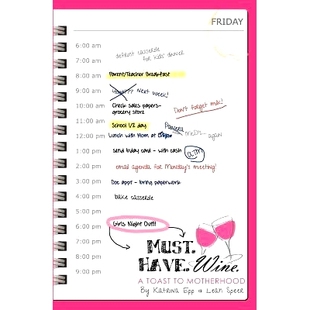 FRIDAY
6:00 am
defrost casserole
for kids' dinner
7:00 am
8:00 am
Parent/Teacher Breakfast
9:00 am
next week!
10:00 am
Check sales papers-
grocery store
Don't forget milk!
11:00 am
School 1/2 day
12:00 pm
Lunch with Mom at
again
1:00 pm
Send bday card - with cash
2:00 pm
email agenda for Monday's meeting!
3:00 pm
Doc appt - bring paperwork
4:00 pm
bake casserole
5:00 pm
6:00 pm
Girls Night Out!!
7:00 pm
8:00 pm
9:00 pm
MUST.
HAVE. Wine.
A TOAST TO MOTHERHOOD
By Katrina Epp & Leah Speer